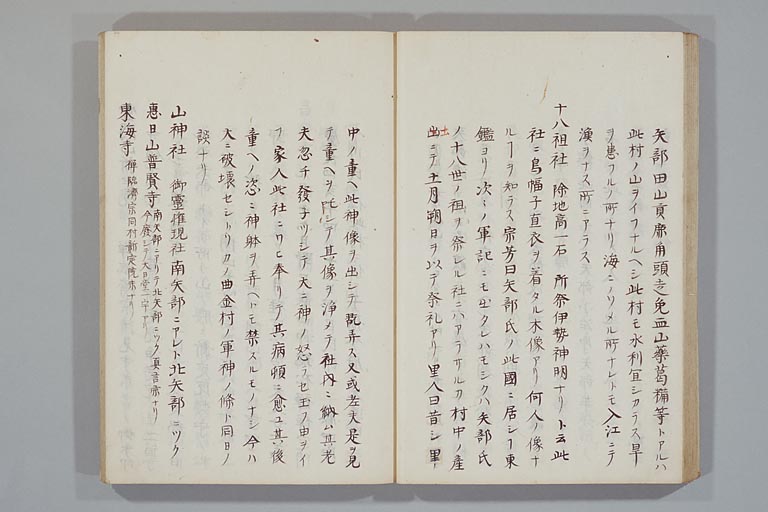 矢部田山貢席角頭走兔血山藥葛襔等トアルハ
此村ノ山ヲイフナルヘシ此村モ水利宜シカラス旱
ヲ患フルノ所ナリ海ニソメル所ナレトモ入江ニテ
漁ヲナス所ニアラス
十八祖社 除地高一石 所祭伊勢神明ナリト云此
社ニ烏幅子直衣ヲ着タル木像アリ何人ノ像ナ
ルヿヲ知ラス宗芳曰矢部氏ノ此國ニ居シヿ東
鑑ヨリ次々ノ軍記ニモ出タレハモシクハ矢部氏
ノ十八世ノ祖ヲ祭レル社ニハアラサルカ村中ノ産
土ニテ十一月朔日ヲ以テ祭礼アリ里人曰昔シ里
中ノ童ヘ此神像ヲ出シテ翫弄ス又或老夫是ヲ見
テ童ヘヲ叱シテ其像ヲ浄メテ社内ニ納ム其老
夫忽チ發子ツシテ大ニ神ノ怒ラセ玉フ由ヲイ
フ家人此社ニワヒ奉リテ其病頓ニ愈ユ其後
童ヘノ恣ニ神躰ヲ弄ヘトモ禁スルモノナシ今ハ
大ニ破壊セシトソカノ曲金村ノ軍神ノ條ト同日ノ
談ナリ
山神社 御靈権現社 南矢部ニアレト北矢部ニツク
惠日山普賢寺 南矢部ニアリテ北矢部ニツク真言宗ナリ
今廢シテ大日堂一宇アリ
東海寺 禅臨濟宗同村新定院末ナリ